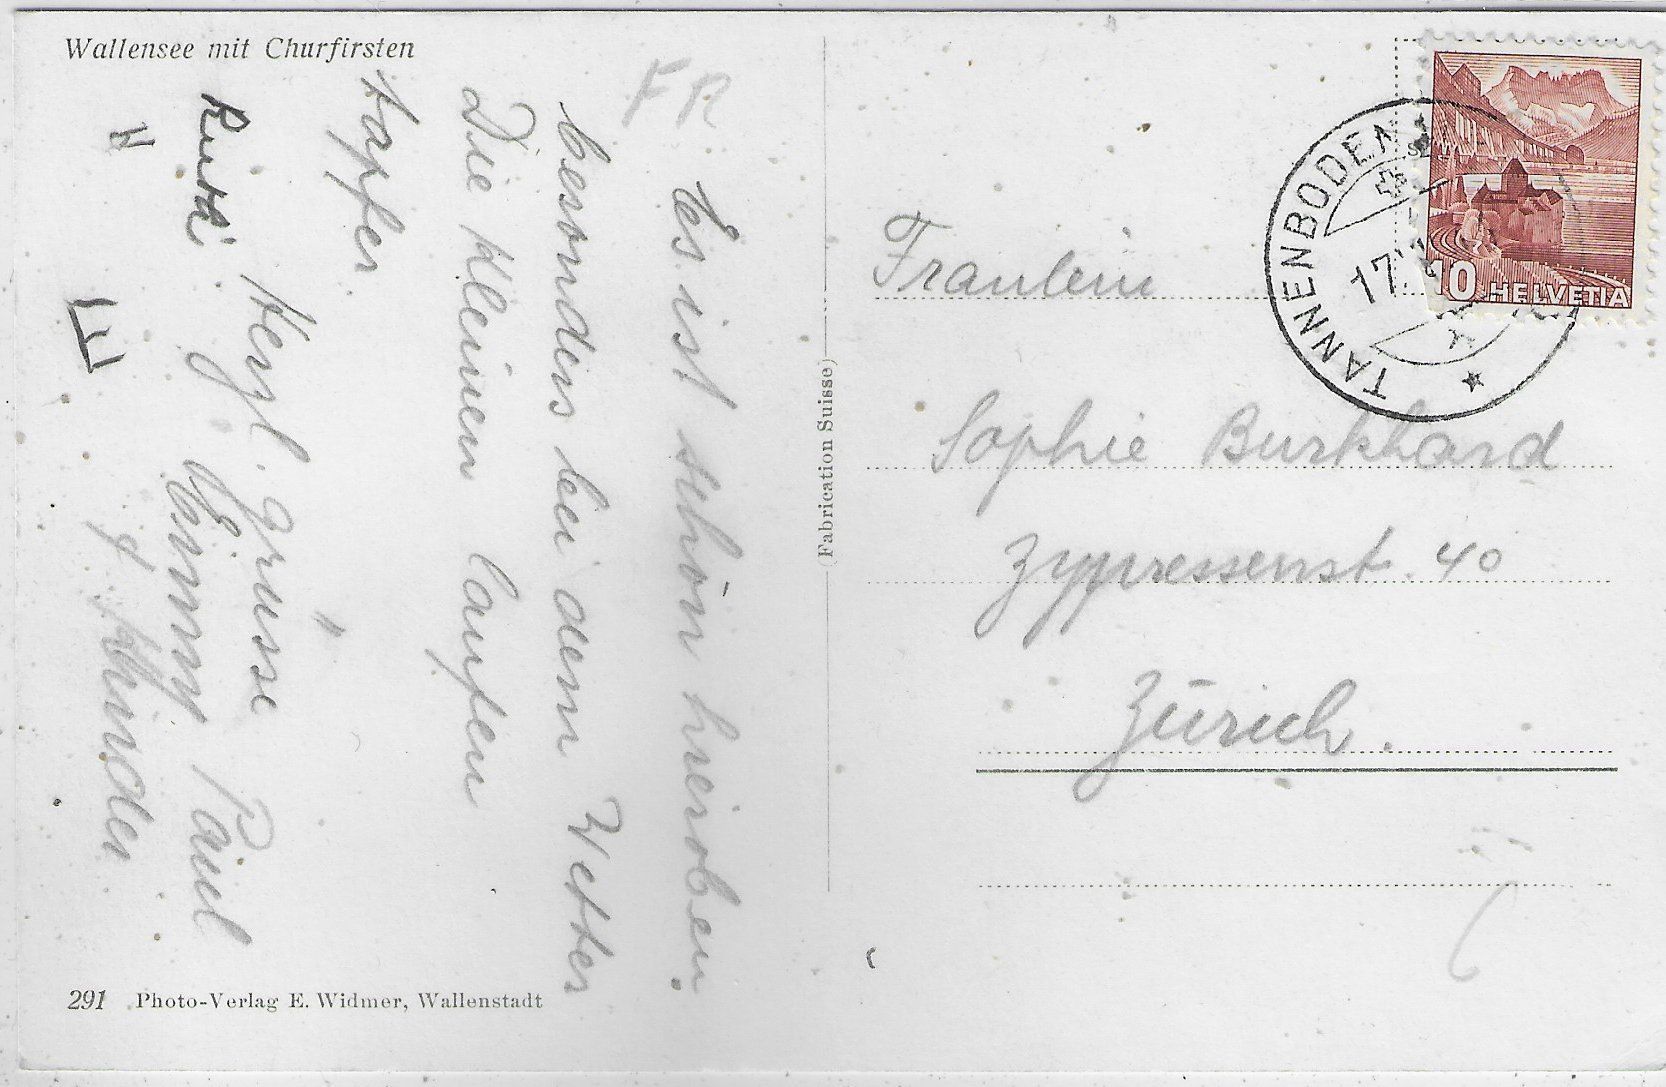 Wallensee mit Churfirsten
FR
Es ist schön hieroben,
besonders bei dem Wetter
Die Kleinen laufen
tapfer
Herzl. grüsse
Ruth Emmy Paul
& Kinder
(Fabrication Suisse)
291 Photo-Verlag E. Widmer, Wallenstadt
TANNENBODEN
17.
10 HELVETIA
Fraulein
Sophie Burkhard
Zypressenst. 40
Zürich.